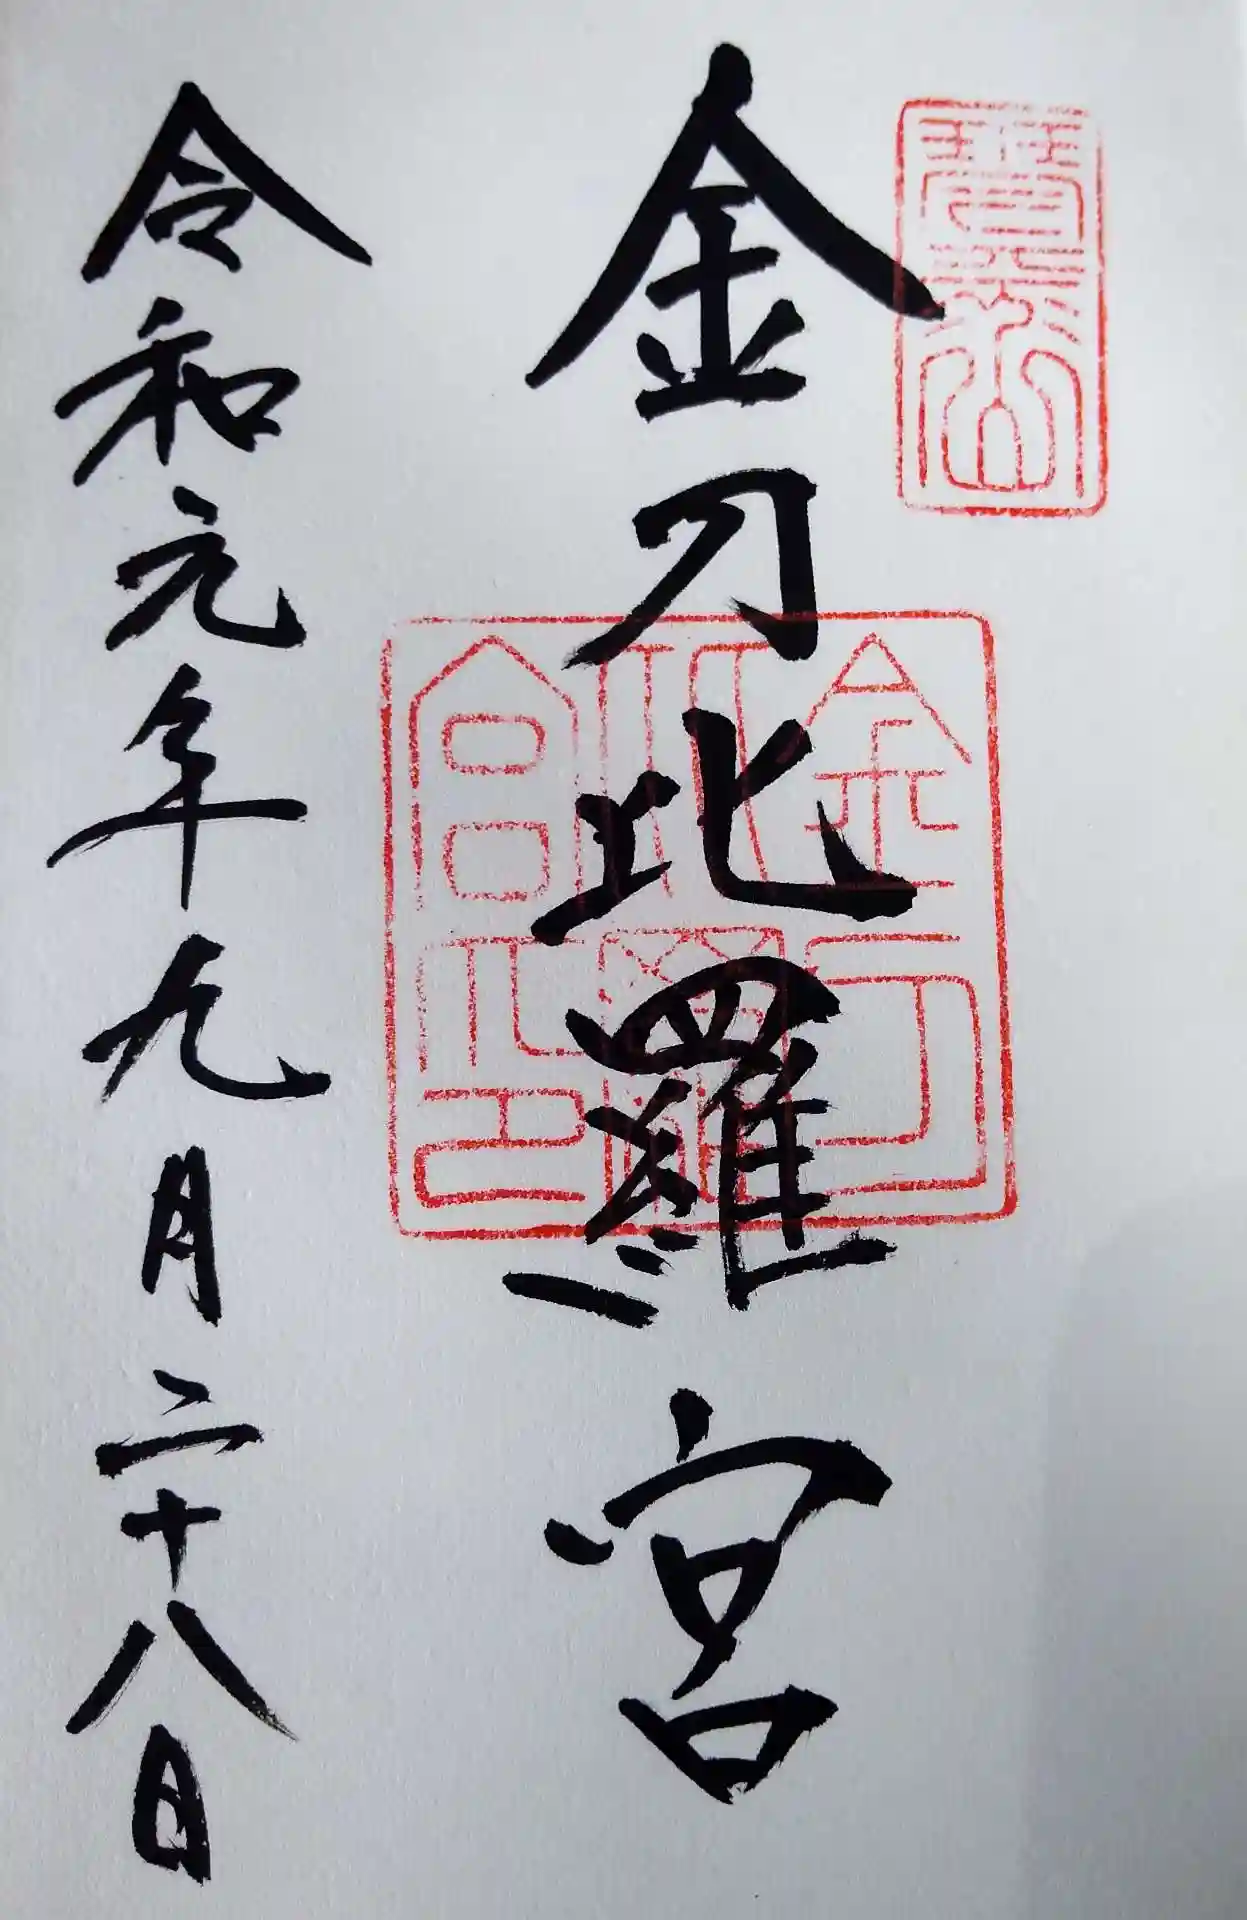 金刀比羅宮
令和元年九月二十八日
金刀比羅宮印